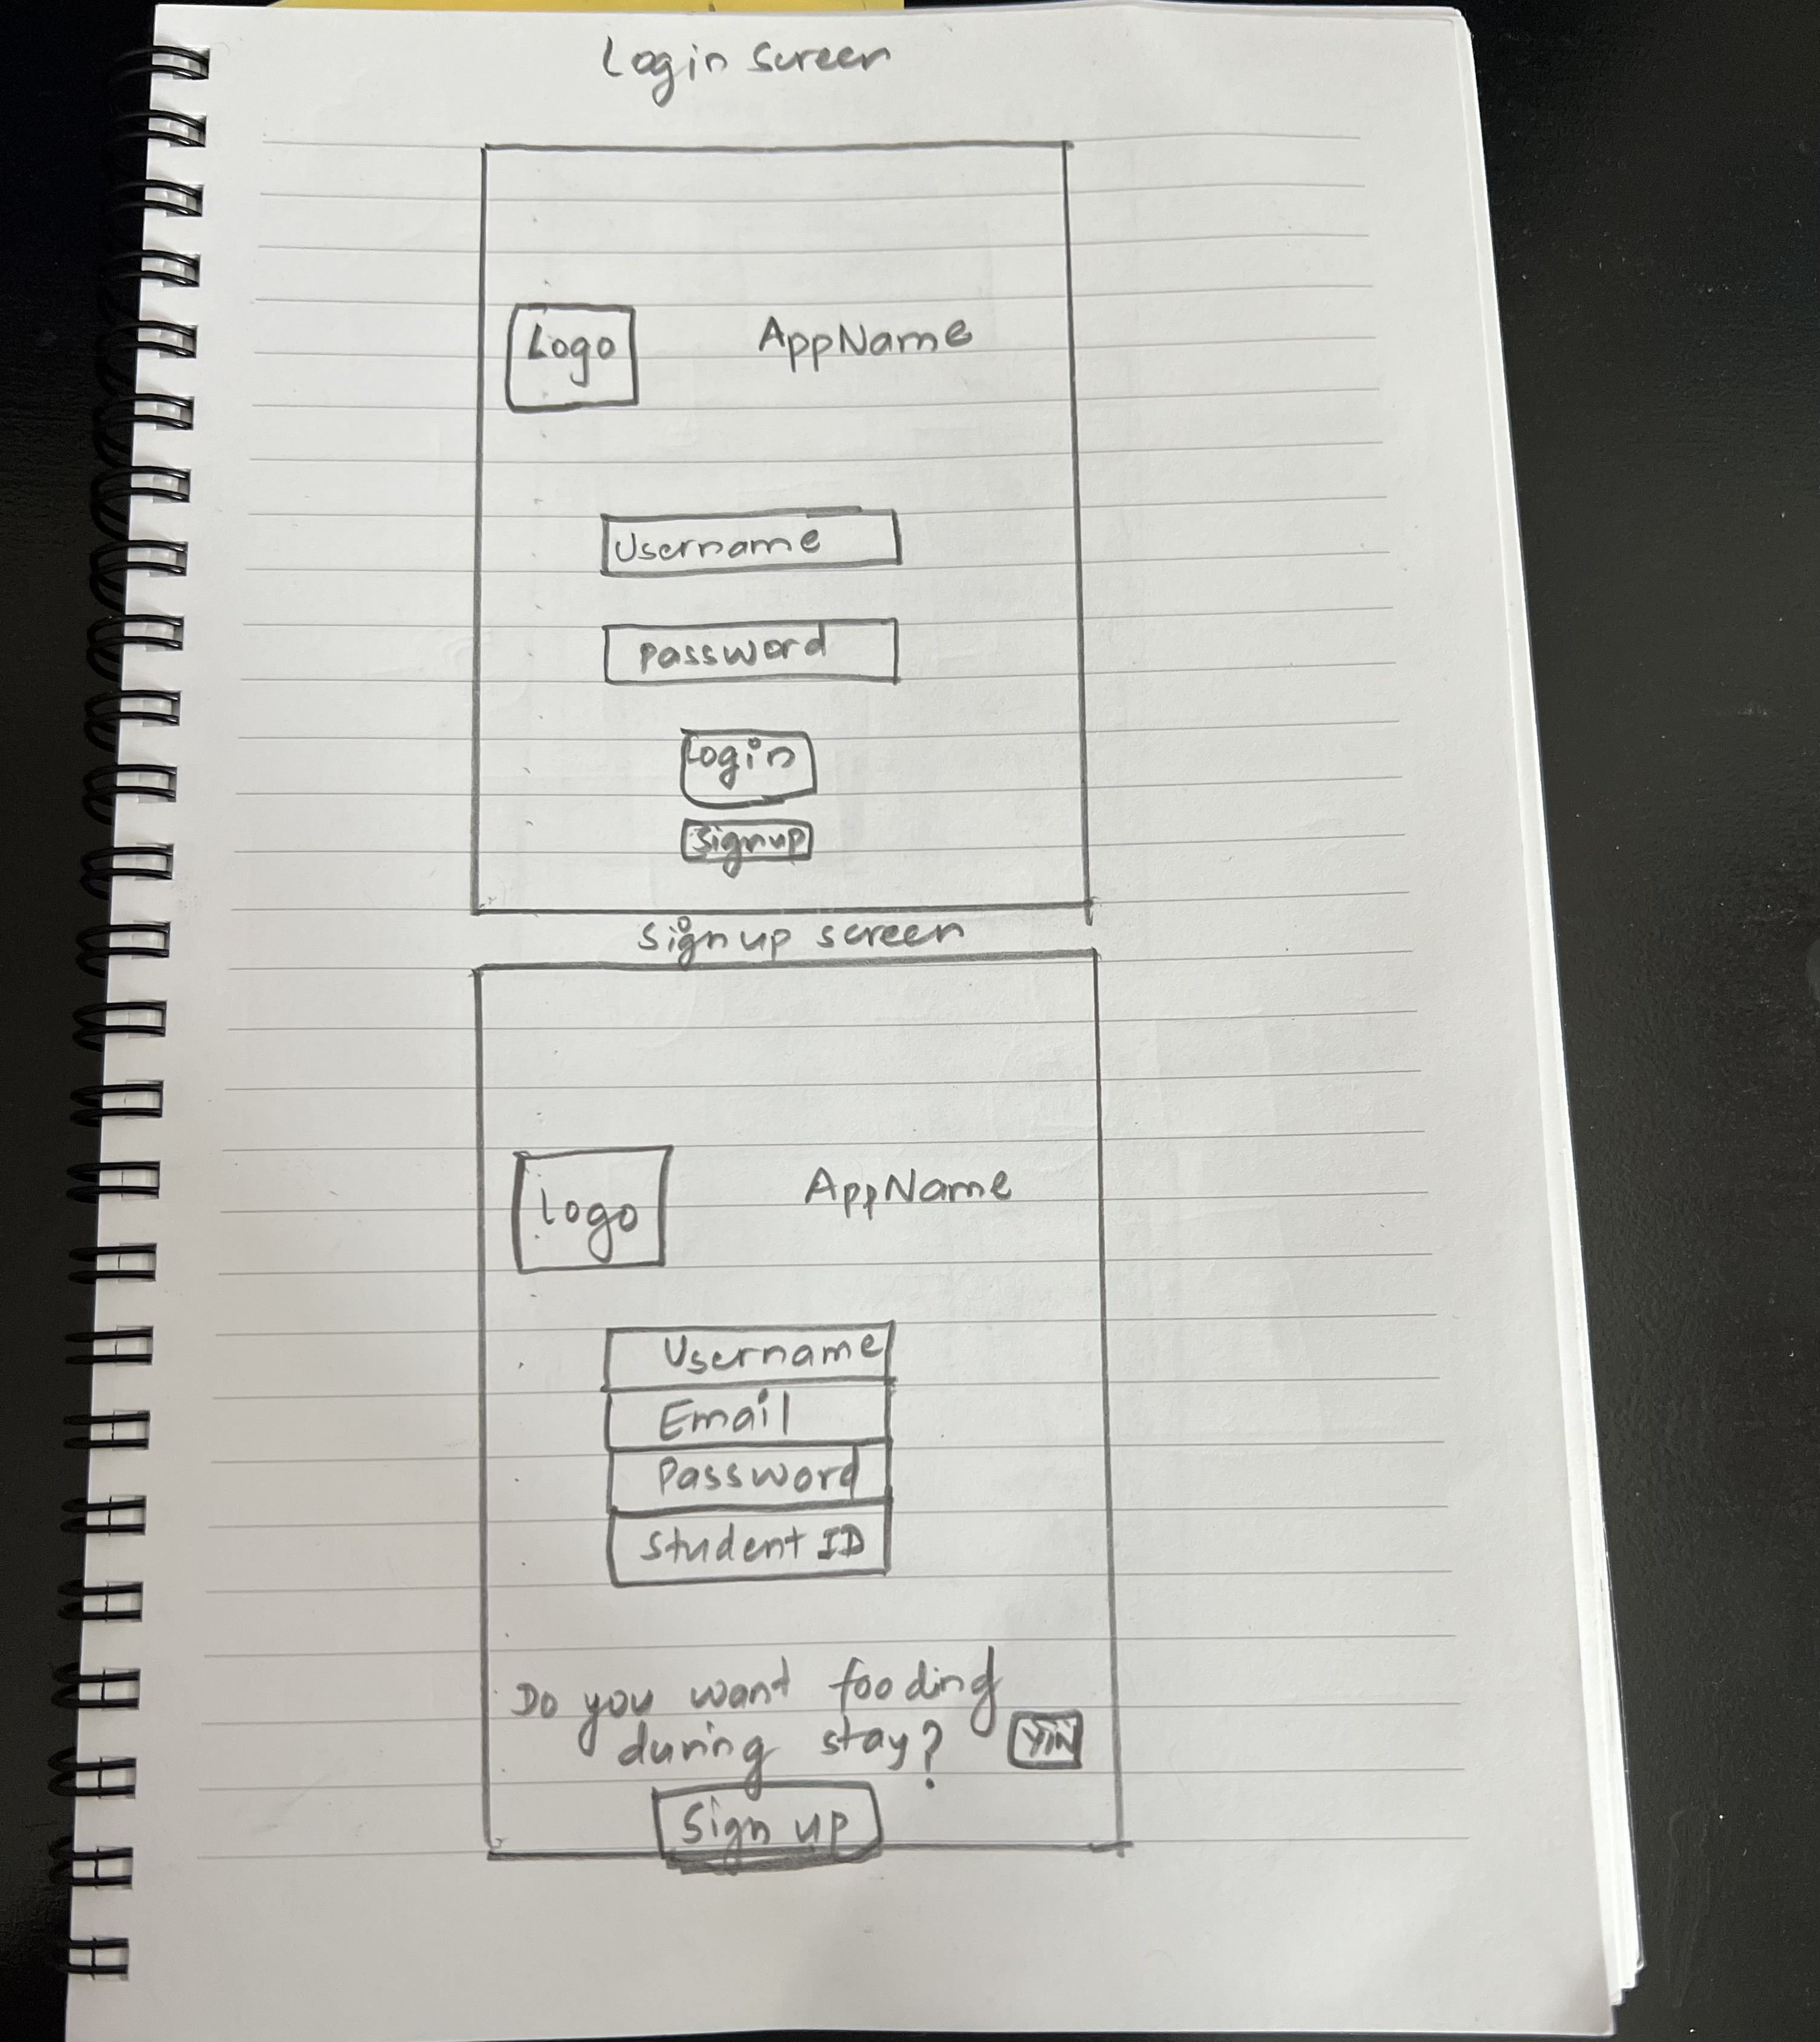 Login screen
Logo
AppName
Username
password
Login
Signup
Signup screen
Logo
AppName
Username
Email
Password
Student ID
Do you want fooding
during stay?
Y/N
Sign up